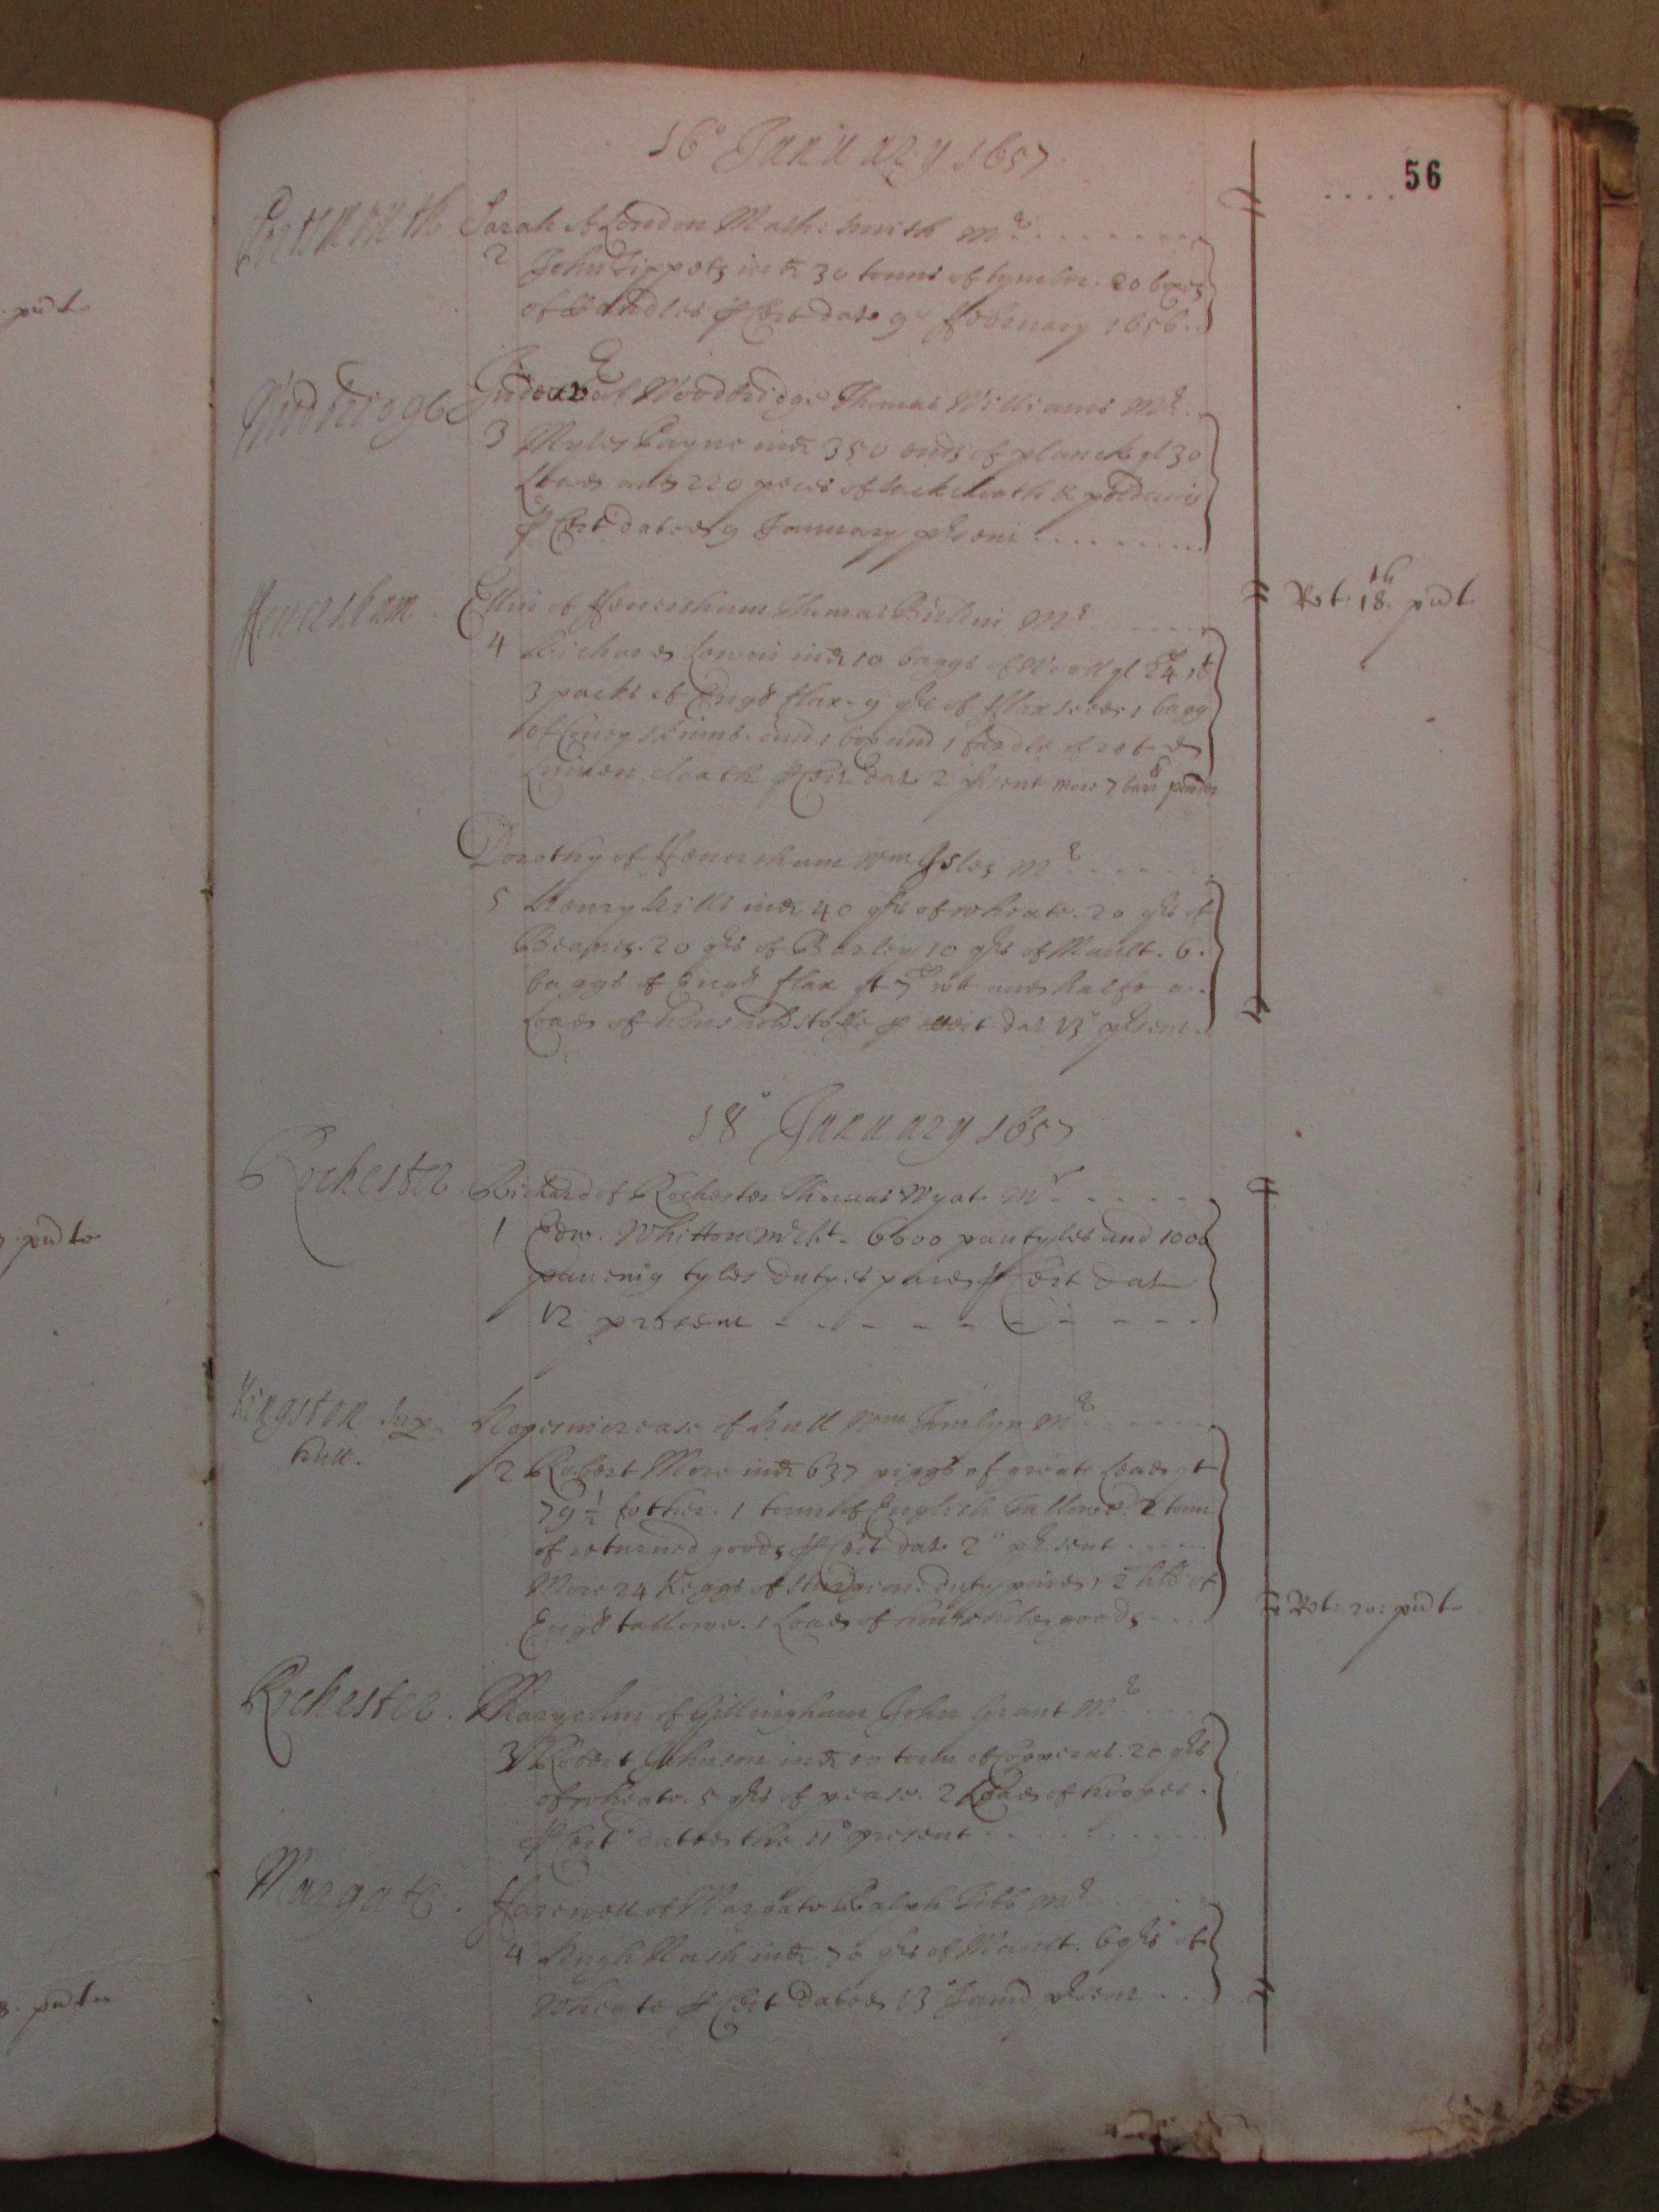 56
16° January 1657
Portsmouth Sarah of London Math: Smith Mr
2 John Tippets ind 30 tonns of tymber. 20 boxes
of Candles p Cert date 9 ffebruary 1656
Woodbridge Indeavor of Woodbridge Thomas Williams Mr
3 Myles Payne ind 350 ends of planck qt 30
Loads and 220 peces of sackcloath & poldavis
p Cert dated 9 January present
ffeversham Ellin of ffeversham Thomas Mr
4 Richard ind 10 baggs of Wooll qt
3 packs of Engs flax 9 qrs of fflax seed 1 bagg
of Coney skinns and 1 box and 1 fardle of ret d
Linnen cloath p Cert dat 2 present more 7 barrs powder
Dorothy of ffeversham Wm Isles Mr
5 Henry Hills ind 40 qrs of wheate. 20 qrs of
Beanes. 20 qrs of Barley 10 qrs of Mault. 6
baggs of Engs flax qt 7 and halfe a
Load of housholdstuffe p Cert dat 13° present
Ret: 16 18. pid t
18° January 1657
Rochester Richard of Rochester Thomas Wyat Mr
1 Edw. Whitton Mcht 6600 pantyles and 1000
paveing tyles dutyes paied p Cert dat
12 present
Kingston Sup Hull. Hopeincrease of Hull Wm Tomlyn Mr
2 Robert More ind 637 piggs of greate Lead qt
79 ½ fother. 1 tonn of English Tallowe. 2 tonn
of returned goods p Cert dat 2° present
More 24 keggs of sturgion duty paied 1 hhd of
Engs tallowe. 1 Load of household goods
Ret: 20: pid t
Rochester. Mary Ann of Gillingham John Grant Mr
3 Robert Johnson ind 10 tonn of Copperas. 20 qrs
of wheate. 5 qrs of pease. 2 Load of hoopes
p Cert dated the 11° present
Margate. ffarewell of Margate Ralph Tibb Mr
4 Hugh Nash ind. 76 qrs of Mault. 6 qrs of
Wheate p Cert dated 13° present